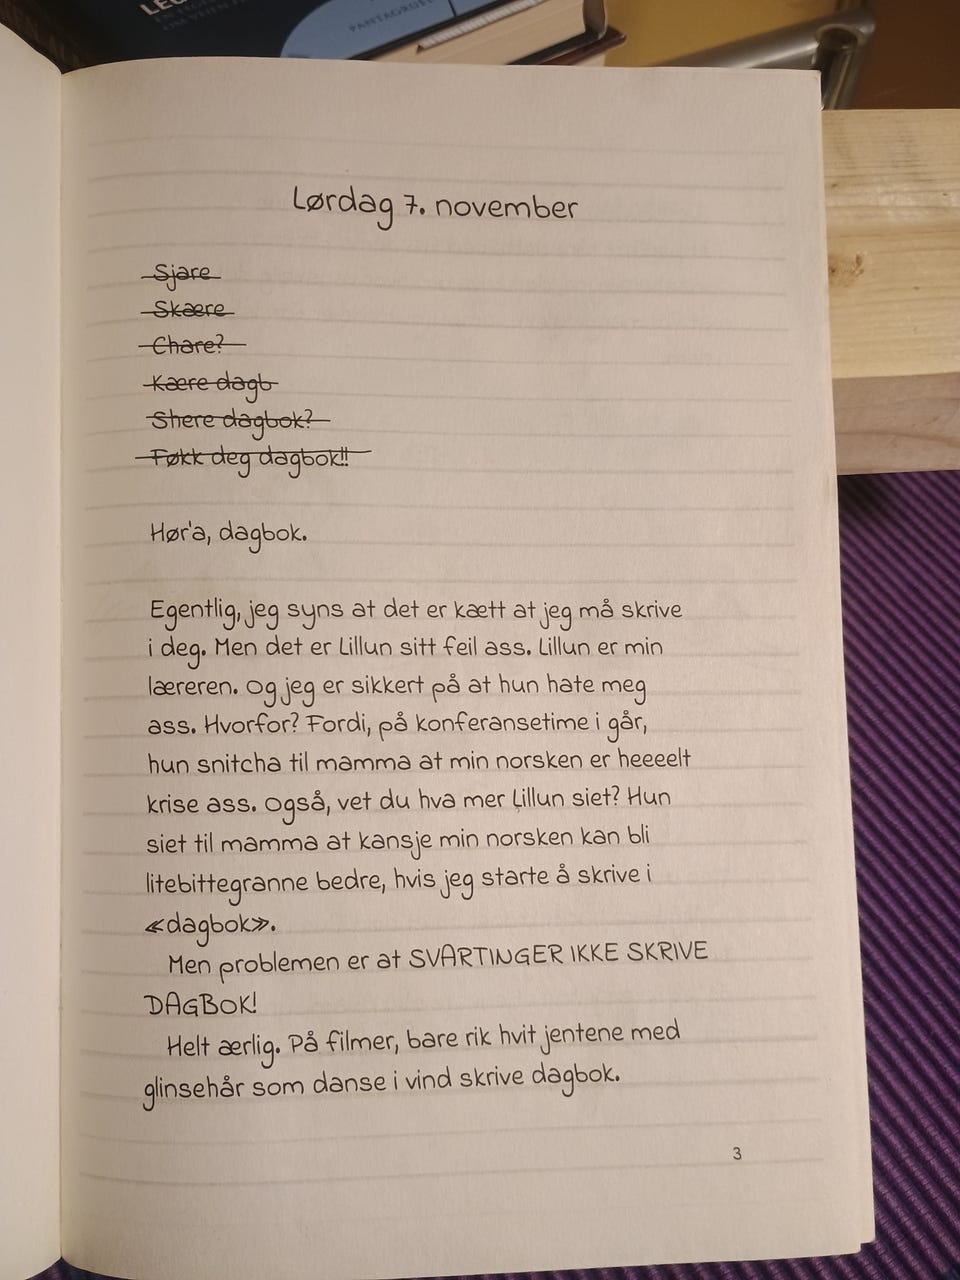 PANTAGRUEL
Lørdag 7. november
Sjare
Skære
Chare?
Kære dagb
Shere dagbok?
Føkk deg dagbok!!
Hør'a, dagbok.
Egentlig, jeg syns at det er kætt at jeg må skrive
i deg. Men det er Lillun sitt feil ass. Lillun er min
læreren. Og jeg er sikkert på at hun hate meg
ass. Hvorfor? Fordi, på konferansetime i går,
hun snitcha til mamma at min norsken er heeeelt
krise ass. Også, vet du hva mer Lillun siet? Hun
siet til mamma at kansje min norsken kan bli
litebittegranne bedre, hvis jeg starte å skrive i
«dagbok».
Men problemen er at SVARTINGER IKKE SKRIVE
DAGBOK!
Helt ærlig. På filmer, bare rik hvit jentene med
glinsehår som danse i vind skrive dagbok.
3